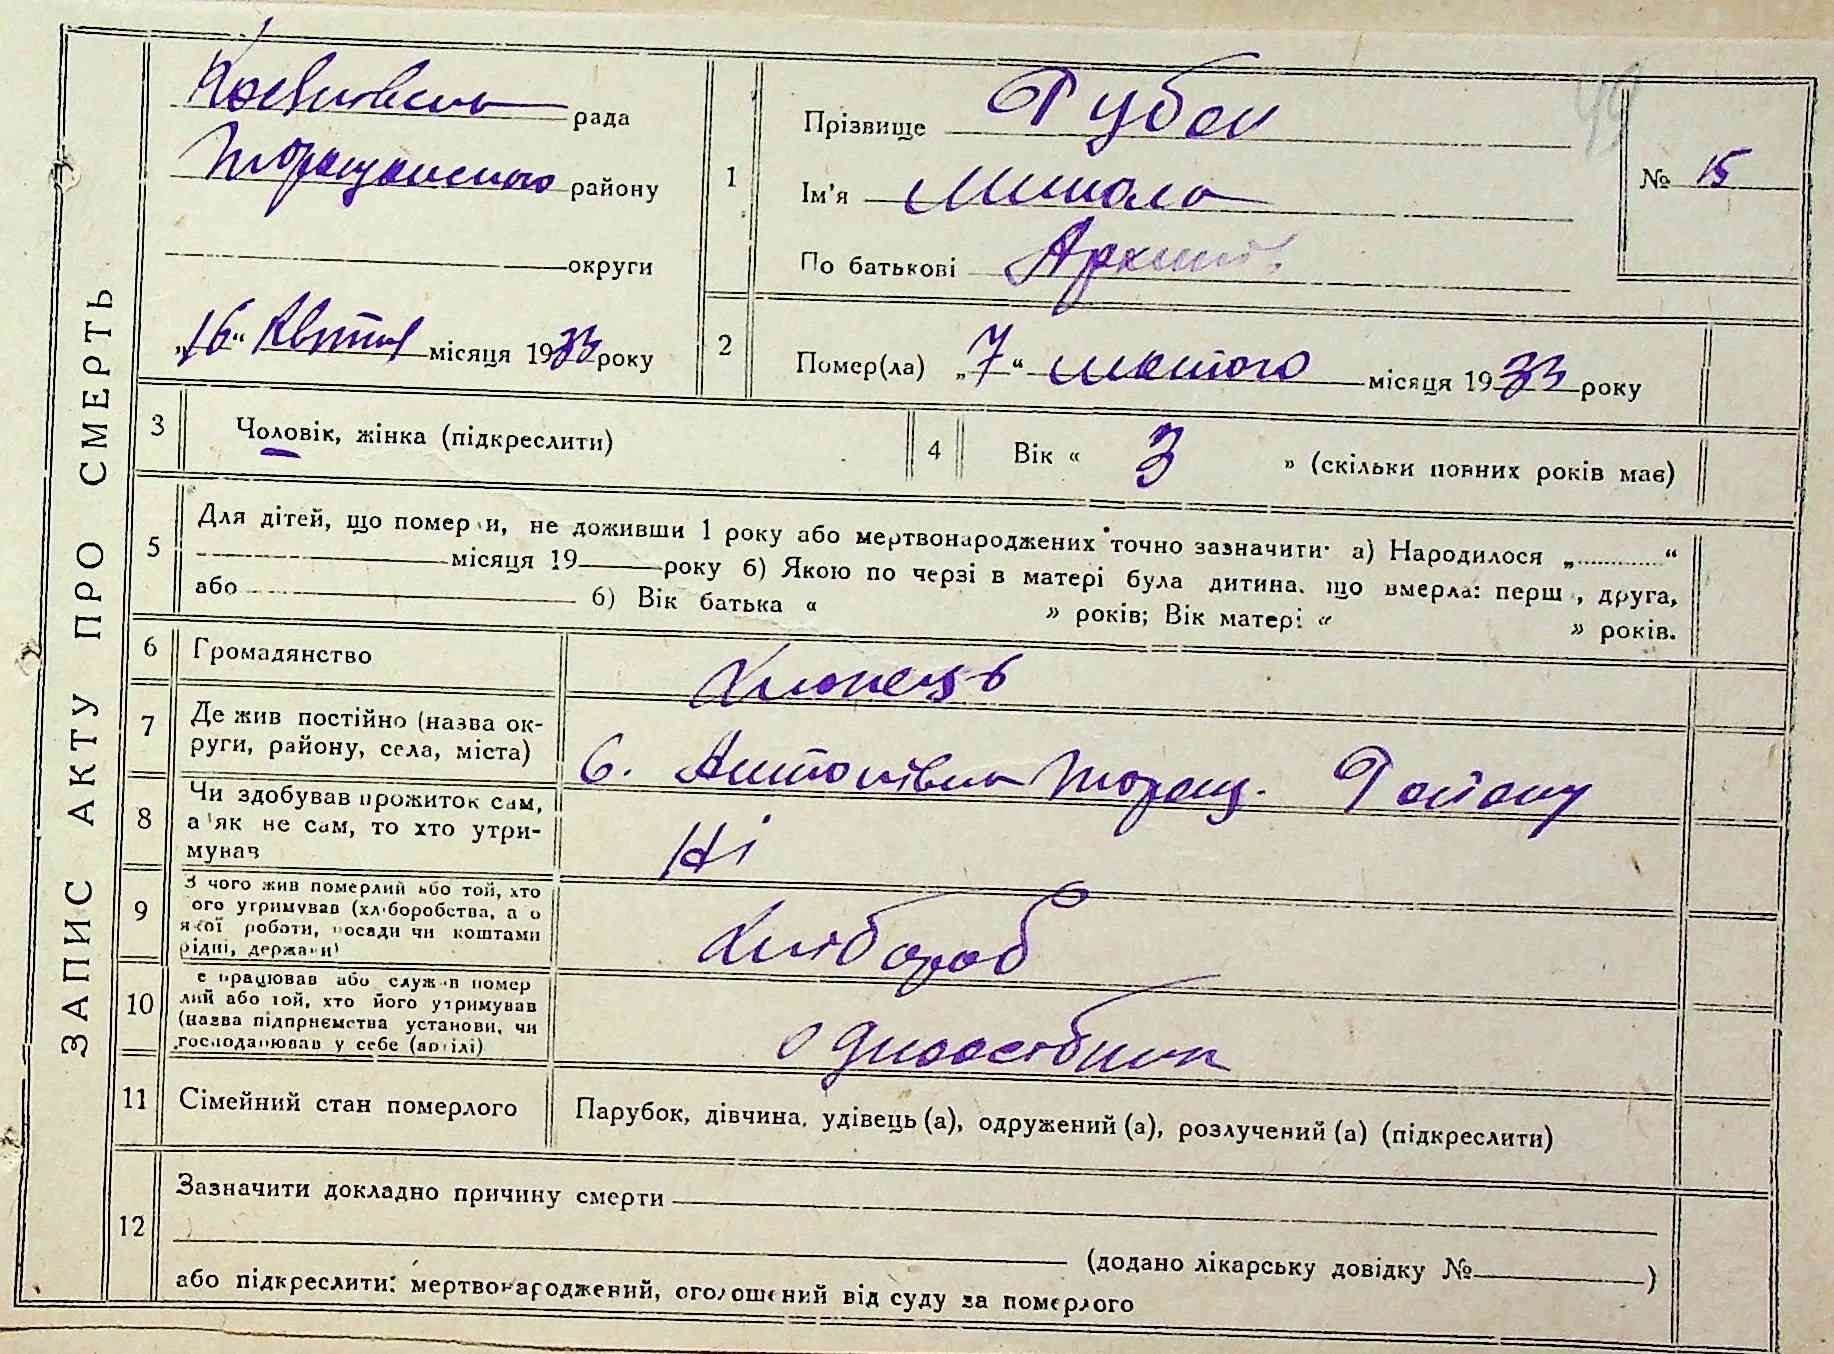 ЗАПИС АКТУ ПРО СМЕРТЬ
рада
Торащанського району
округи
„16“ Квітня місяця 1933 року
49
№ 15
1
Прізвище Рубан
Ім'я Микола
По батькові
2
Помер(ла) „7“ лютого місяця 1933 року
3
Чоловік, жінка (підкреслити)
4
Вік « 3 » (скільки повних років має)
5
Для дітей, що помер и, не доживши 1 року або мертвонароджених точно зазначити: а) Народилося „............“
місяця 19 року б) Якою по черзі в матері була дитина, що вмерла: перш , друга,
або б) Вік батька « » років; Вік матері: « » років.
6
Громадянство
Хлопець
7
Де жив постійно (назва ок-
руги, району, села, міста)
С. Антонівка Торащ. Району
8
Чи здобував прожиток сам,
а як не сам, то хто утри-
мував
Ні
9
З чого жив померлий або той, хто
ого утримував (хл боробства, а о
якої роботи, посади чи коштами
рідні, держави)
Хлібороб
10
е працював або служив помер
лий або той, хто його утримував
(назва підприємства установи, чи
господарював у себе (артілі)
одноосібник
11
Сімейний стан померлого
Парубок, дівчина, удівець (а), одружений (а), розлучений (а) (підкреслити)
12
Зазначити докладно причину смерти
(додано лікарську довідку № )
або підкреслити: мертвонароджений, оголошений від суду за померлого